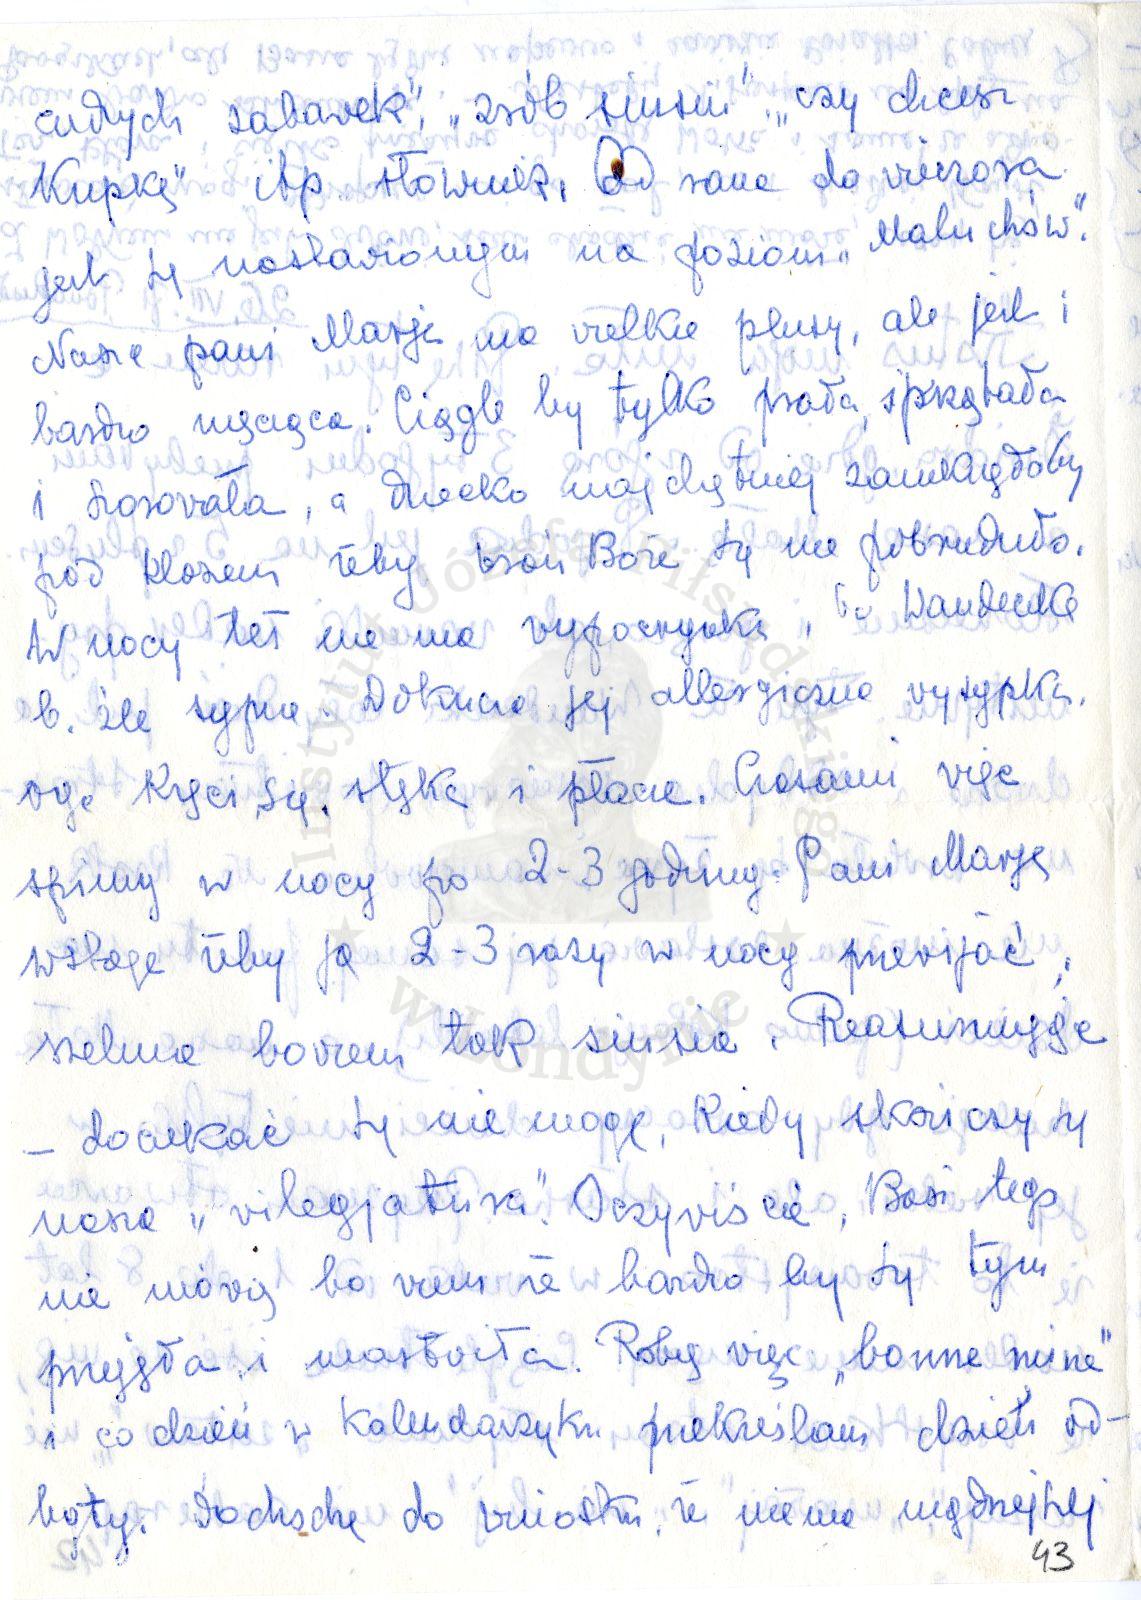 cudzych zabawek", "zrób siusiu", "czy chcesz
Kupkę" itp. słownik. Od rana do wieczora
jest się nastawionym na poziom "Maluchów".
Nasza pani Marja ma wielkie plusy, ale jest i
bardzo męcząca. Ciągle by tylko prała, sprzątała
i prasowała, a dziecko najchętniej zamknęłoby
pod kloszem żeby broń Boże się nie pobrudziło.
W nocy też nie ma wypoczynku, bo Wandeczka
b. źle sypia. Dokucza jej allergiczna wysypka,
więc kręci się, stęka i płacze. Czasami więc
śpimy w nocy po 2-3 godziny. Pani Marja
wstaje żeby ją 2-3 razy w nocy przewijać,
szelma bowiem tak siusia. Reasumując
– doczekać się nie mogę, kiedy skończy się
nasza "vilegjatura". Oczywiście, Basi tego
nie mówię bo wiem że bardzo by się tym
przejęła i martwiła. Robię więc "bonne mine"
i co dzień w kalendarzyku przekreślam dzień od-
bęty. Dochodzę do wniosku, że niema mądrzejszej
43
Instytut Józefa Piłsudskiego
w Londynie